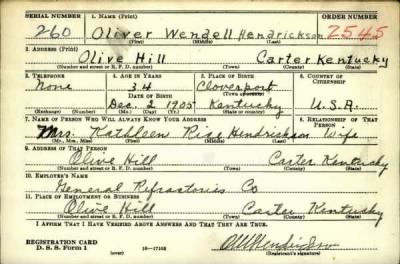 SERIAL NUMBER 1. NAME (Print) ORDER NUMBER
260 Oliver Wendell Hendrickson 2545
(First) (Middle) (Last)
2. ADDRESS (Print)
Olive Hill Carter Kentucky
(Number and street or R. F. D. number) (Town) (County) (State)
3. TELEPHONE 4. AGE IN YEARS 5. PLACE OF BIRTH 6. COUNTRY OF CITIZENSHIP
None 34 Cloverport
DATE OF BIRTH (Town or county)
Dec. 2 1905 Kentucky U.S.A.
(Exchange) (Number) (Mo.) (Day) (Yr.) (State or country)
7. NAME OF PERSON WHO WILL ALWAYS KNOW YOUR ADDRESS 8. RELATIONSHIP OF THAT PERSON
Mrs. Kathleen Rice Hendrickson Wife
(Mr., Mrs., Miss) (First) (Middle) (Last)
9. ADDRESS OF THAT PERSON
Olive Hill Carter Kentucky
(Number and street or R. F. D. number) (Town) (County) (State)
10. EMPLOYER'S NAME
General Refractories Co
11. PLACE OF EMPLOYMENT OR BUSINESS
Olive Hill Carter Kentucky
(Number and street or R. F. D. number) (Town) (County) (State)
I AFFIRM THAT I HAVE VERIFIED ABOVE ANSWERS AND THAT THEY ARE TRUE.
REGISTRATION CARD
D. S. S. Form 1 (over) 16—17105 (Registrant's signature)